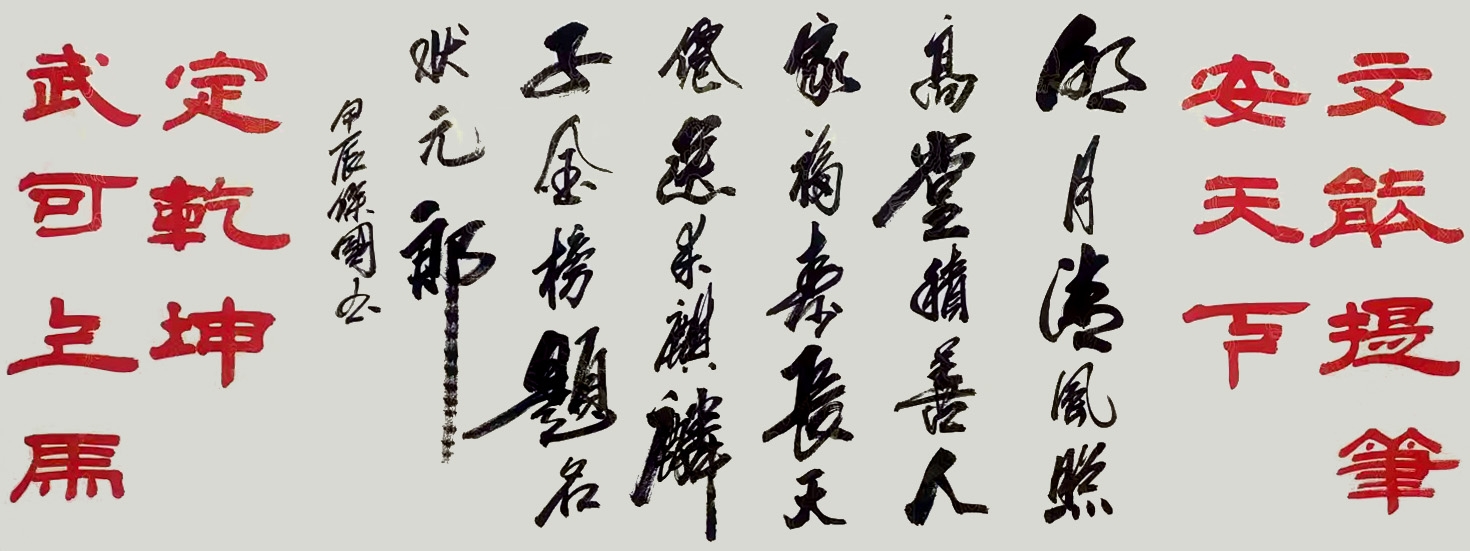 文能提筆
安天下
明月清風照
高堂積善人
家福寿長天
僊送来麒麟
子金榜題名
状元郎
甲辰國书
武可上馬
定乾坤